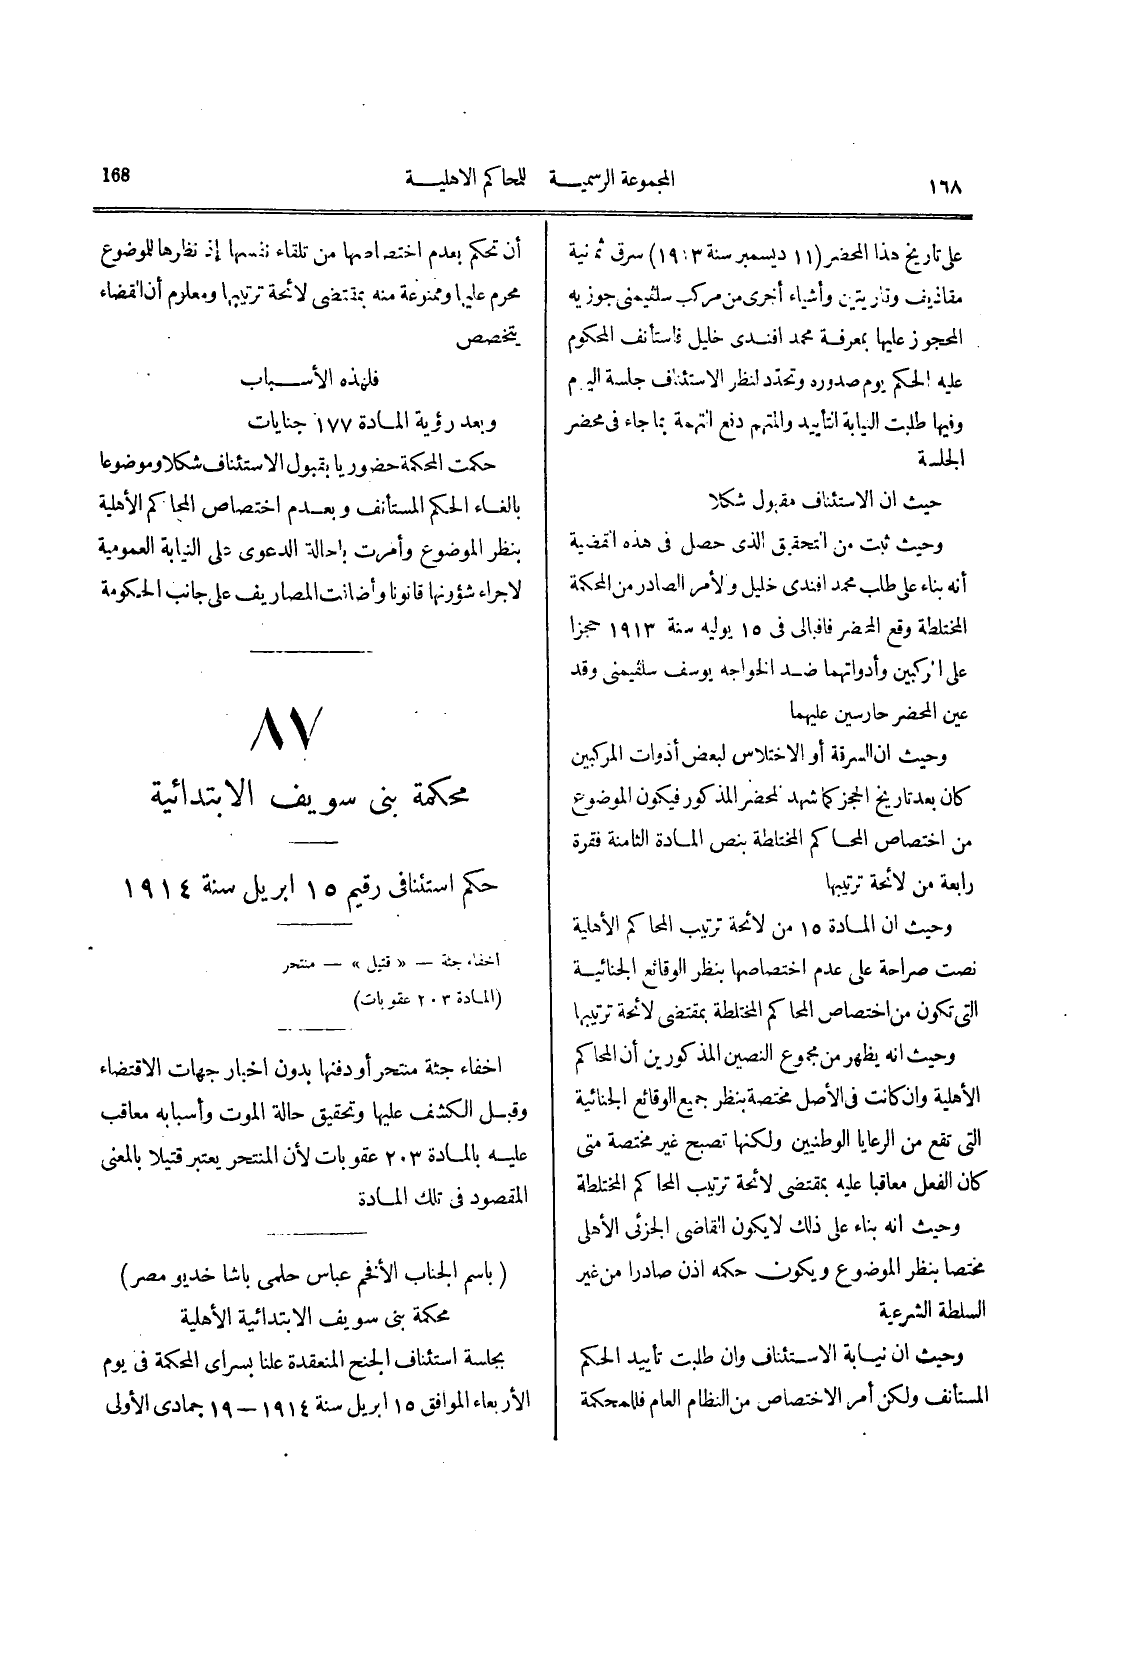 ١٦٨
المجموعة الرسمية للمحاكم الاهلية
168
على تاريخ هذا المحضر (١١ ديسمبر سنة ١٩١٣) سرق ثمانية
مقاذيف وتاريتين وأشياء أخرى من مركب سلفيمنى جوزيه
المحجوز عليها بمعرفة محمد افندى خليل فاستأنف المحكوم
عليه الحكم يوم صدوره وتحدّد لنظر الاستئناف جلسة اليوم
وفيها طلبت النيابة التأييد والمتهم دفع التهمة بما جاء فى محضر
الجلسة
حيث ان الاستئناف مقبول شكلا
وحيث ثبت من التحقيق الذى حصل فى هذه القضية
أنه بناء على طلب محمد افندى خليل ولأمر الصادر من المحكمة
المختلطة وقع المحضر فافيالى فى ١٥ يوليه سنة ١٩١٣ حجزا
على المركبين وأدواتهما ضد الخواجه يوسف سلفيمنى وقد
عين المحضر حارسين عليهما
وحيث ان السرقة أو الاختلاس لبعض أدوات المركبين
كان بعد تاريخ الحجز كما شهد المحضر المذكور فيكون الموضوع
من اختصاص المحاكم المختلطة بنص المادة الثامنة فقرة
رابعة من لائحة ترتيبها
وحيث ان المادة ١٥ من لائحة ترتيب المحاكم الأهلية
نصت صراحة على عدم اختصاصها بنظر الوقائع الجنائية
التى تكون من اختصاص المحاكم المختلطة بمقتضى لائحة ترتيبها
وحيث انه يظهر من مجموع النصين المذكورين أن المحاكم
الأهلية وان كانت فى الأصل مختصة بنظر جميع الوقائع الجنائية
التى تقع من الرعايا الوطنيين ولكنها تصبح غير مختصة متى
كان الفعل معاقبا عليه بمقتضى لائحة ترتيب المحاكم المختلطة
وحيث انه بناء على ذلك لايكون القاضى الجزئى الأهلى
مختصا بنظر الموضوع ويكون حكمه اذن صادرا من غير
السلطة الشرعية
وحيث ان نيابة الاستئناف وان طلبت تأييد الحكم
المستأنف ولكن أمر الاختصاص من النظام العام فللمحكمة
أن تحكم بعدم اختصاصها من تلقاء نفسها إذ نظارها للموضوع
محرم عليها وممنوعة منه بمقتضى لائحة ترتيبها ومعلوم أن القضاء
يتخصص
فلهذه الأسباب
وبعد رؤية المادة ١٧٧ جنايات
حكمت المحكمة حضوريا بقبول الاستئناف شكلا وموضوعا
بالغاء الحكم المستأنف وبعدم اختصاص المحاكم الأهلية
بنظر الموضوع وأمرت باحالة الدعوى على النيابة العمومية
لاجراء شؤونها قانونا وأضافت المصاريف على جانب الحكومة
٨٧
محكمة بنى سويف الابتدائية
حكم استئنافى رقيم ١٥ ابريل سنة ١٩١٤
أخفاء جثة — « قتيل » — منتحر
(المادة ٢٠٣ عقوبات)
اخفاء جثة منتحر أودفنها بدون اخبار جهات الاقتضاء
وقبل الكشف عليها وتحقيق حالة الموت وأسبابه معاقب
عليه بالمادة ٢٠٣ عقوبات لأن المنتحر يعتبر قتيلا بالمعنى
المقصود فى تلك المادة
( باسم الجناب الأفخم عباس حلمى باشا خديو مصر )
محكمة بنى سويف الابتدائية الأهلية
بجلسة استئناف الجنح المنعقدة علنا بسراى المحكمة فى يوم
الأربعاء الموافق ١٥ ابريل سنة ١٩١٤ — ١٩ جمادى الأولى